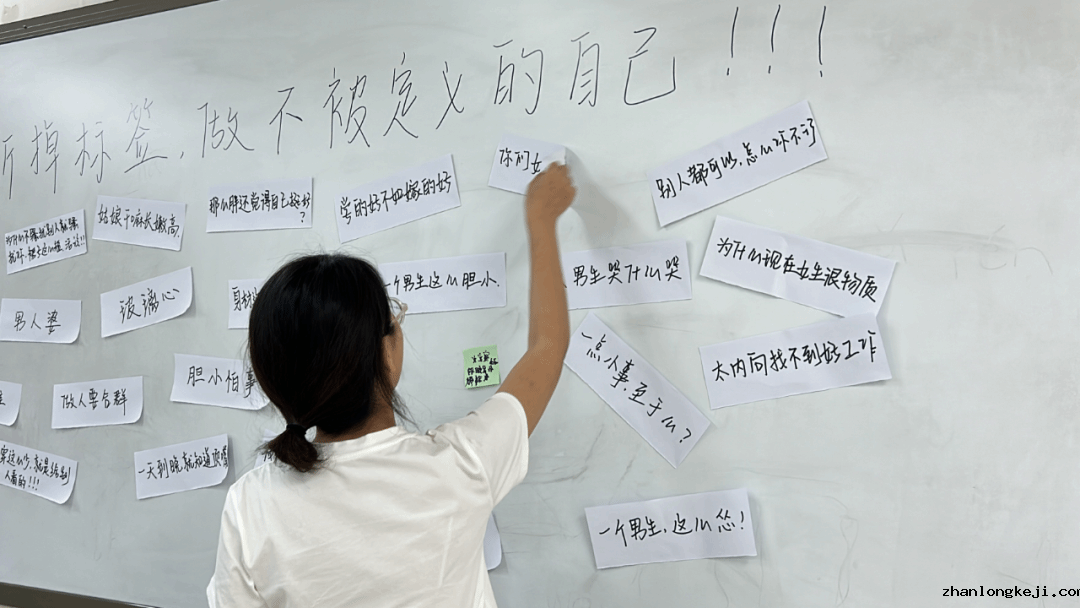 掉标签，做不被定义的自己！！！
你们女
别人都可以，怎么你不行
学的好不如嫁的好
那么胖还觉得自己挺好
？
姑娘干嘛长嫩高，
为什么现在女生很物质
男生哭什么哭
一个男生这么胆小，
玻璃心
男人婆
太内向找不到好工作
一点小事，至于么？
胆小怕事
做人要合群
一天到晚就知道
就是给别
人看的！！！
一个男生，这么怂！
zhanlongkeji.com